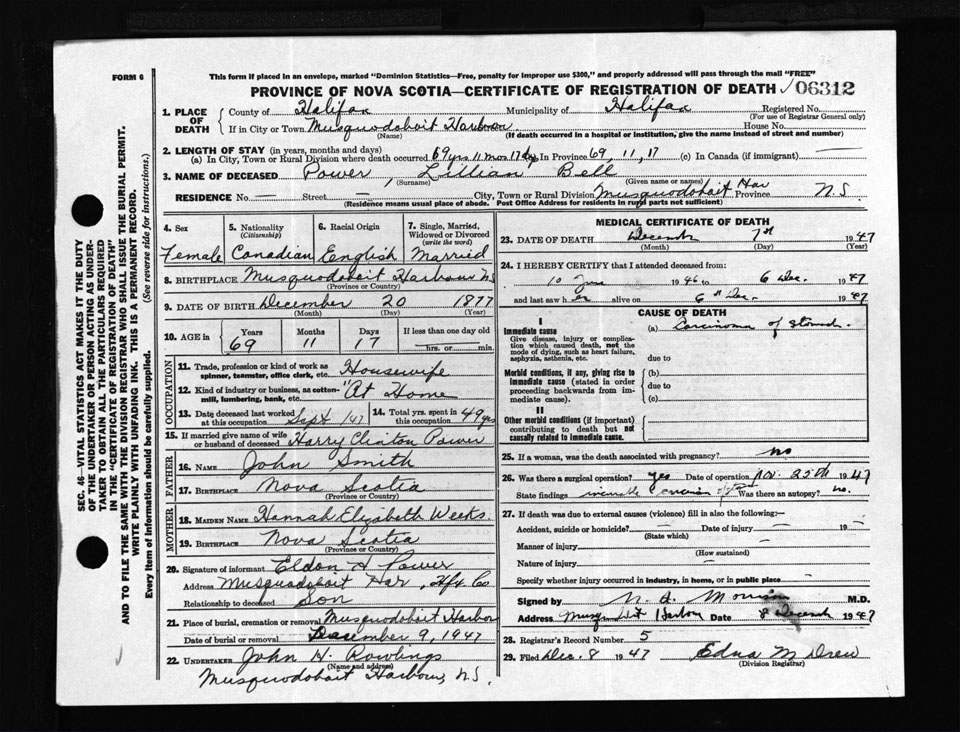 FORM 6
This form if placed in an envelope, marked "Dominion Statistics—Free, penalty for improper use $300," and properly addressed will pass through the mail "FREE"
PROVINCE OF NOVA SCOTIA—CERTIFICATE OF REGISTRATION OF DEATH
06312
SEC. 46—VITAL STATISTICS ACT MAKES IT THE DUTY
OF THE UNDERTAKER OR PERSON ACTING AS UNDER-
TAKER TO OBTAIN ALL THE PARTICULARS REQUIRED
IN THE "CERTIFICATE OF REGISTRATION OF DEATH"
AND TO FILE THE SAME WITH THE DIVISION REGISTRAR WHO SHALL ISSUE THE BURIAL PERMIT.
WRITE PLAINLY WITH UNFADING INK. THIS IS A PERMANENT RECORD.
Every item of information should be carefully supplied. (See reverse side for instructions.)
1. PLACE OF DEATH County of Halifax Municipality of Halifax Registered No.
(For use of Registrar General only)
If in City or Town Musquodoboit Harbour House No.
(Name) (If death occurred in a hospital or institution, give the name instead of street and number)
2. LENGTH OF STAY (in years, months and days)
(a) In City, Town or Rural Division where death occurred 69 yrs 11 mos 17 dys In Province 69, 11, 17 (c) In Canada (if immigrant) —
3. NAME OF DECEASED Power, Lillian Bell
(Surname) (Given name or names)
RESIDENCE No. — Street — City, Town or Rural Division Musquodoboit Har Province N.S.
(Residence means usual place of abode. Post Office Address for residents in rural parts not sufficient)
4. Sex
Female
5. Nationality
(Citizenship)
Canadian
6. Racial Origin
English
7. Single, Married,
Widowed or Divorced
(write the word)
Married
8. BIRTHPLACE Musquodoboit Harbour NS
(Province or Country)
9. DATE OF BIRTH December 20 1877
(Month) (Day) (Year)
10. AGE in Years Months Days If less than one day old
69 11 17 hrs. or min.
OCCUPATION
11. Trade, profession or kind of work as
spinner, teamster, office clerk, etc. Housewife
12. Kind of industry or business, as cotton-
mill, lumbering, bank, etc. "At Home
13. Date deceased last worked
at this occupation Sept '47
14. Total yrs. spent in
this occupation 49 yrs
15. If married give name of wife
or husband of deceased Harry Clinton Power
FATHER
16. NAME John Smith
17. BIRTHPLACE Nova Scotia
(Province or Country)
MOTHER
18. MAIDEN NAME Hannah Elizabeth Weeks.
19. BIRTHPLACE Nova Scotia
(Province or Country)
20. Signature of informant Eldon H Power
Address Musquodoboit Har, Hfx Co
Relationship to deceased Son
21. Place of burial, cremation or removal Musquodoboit Harbour
Date of burial or removal December 9, 1947
22. UNDERTAKER John H. Rowlings
(Name and address)
Musquodoboit Harbour, N.S.
MEDICAL CERTIFICATE OF DEATH
23. DATE OF DEATH December 7th 1947
(Month) (Day) (Year)
24. I HEREBY CERTIFY that I attended deceased from:
10 June 1946 to 6 Dec. 1947
and last saw her alive on 6th Dec. 1947
CAUSE OF DEATH
I
Immediate cause
Give disease, injury or complica-
tion which caused death, not the
mode of dying, such as heart failure,
asphyxia, asthenia, etc.
(a) Carcinoma of stomach.
due to
Morbid conditions, if any, giving rise to
immediate cause (stated in order
proceeding backwards from im-
mediate cause).
(b)
due to
(c)
II
Other morbid conditions (if important)
contributing to death but not
causally related to immediate cause.
25. If a woman, was the death associated with pregnancy? no
26. Was there a surgical operation? yes Date of operation Nov. 25th 1947
State findings Was there an autopsy? no.
27. If death was due to external causes (violence) fill in also the following:—
Accident, suicide or homicide? — Date of injury — 19 —
(State which)
Manner of injury —
(How sustained)
Nature of injury —
Specify whether injury occurred in industry, in home, or in public place —
Signed by M.D.
Address Date 8 December 1947
28. Registrar's Record Number 5
29. Filed Dec. 8 1947 Edna M Drew
(Division Registrar)